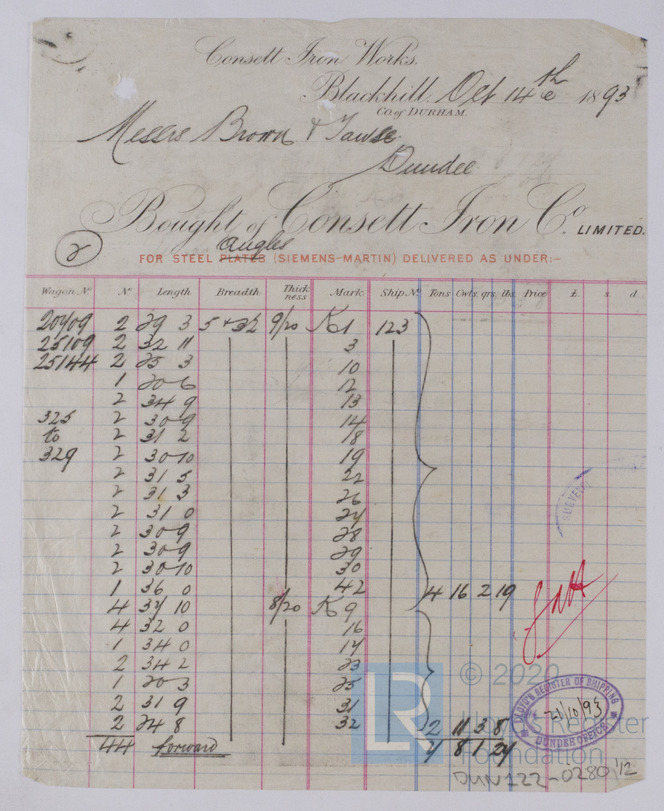 Consett Iron Works.
Blackhill, Oct 14th 1893
Co. of DURHAM.
Messrs Brown & Tawse
Dundee
Bought of Consett Iron Co. LIMITED.
2
Angles
FOR STEEL PLATES (SIEMENS-MARTIN) DELIVERED AS UNDER:-
Wagon No. No. Length Breadth. Thickness Mark. Ship No. Tons Cwts. qrs. lbs. Price £. s. d
20409 2 29 3 5 + 3½ 9/20 K 1 123
25109 2 32 11 3
25144 2 25 3 10
1 20 6 12
2 34 9 13
325 2 30 9 14
to 2 31 2 18
329 2 30 10 19
2 31 5 22
2 31 3 26
2 31 0 27
2 30 9 28
2 30 9 29
2 30 10 30
1 36 0 42 4 16 2 19
4 37 10 8/20 K 9
4 32 0 16
1 34 0 17
2 34 2 23
1 20 3 25
2 31 9 31
2 24 8 32 2 11 3 8
44 forward 7 8 1 27
LLOYD'S REGISTER OF SHIPPING
21/10/93
DUNDEE OFFICE
LR
© 2020
Lloyd's Register
Foundation
DUN122-0280 1/2